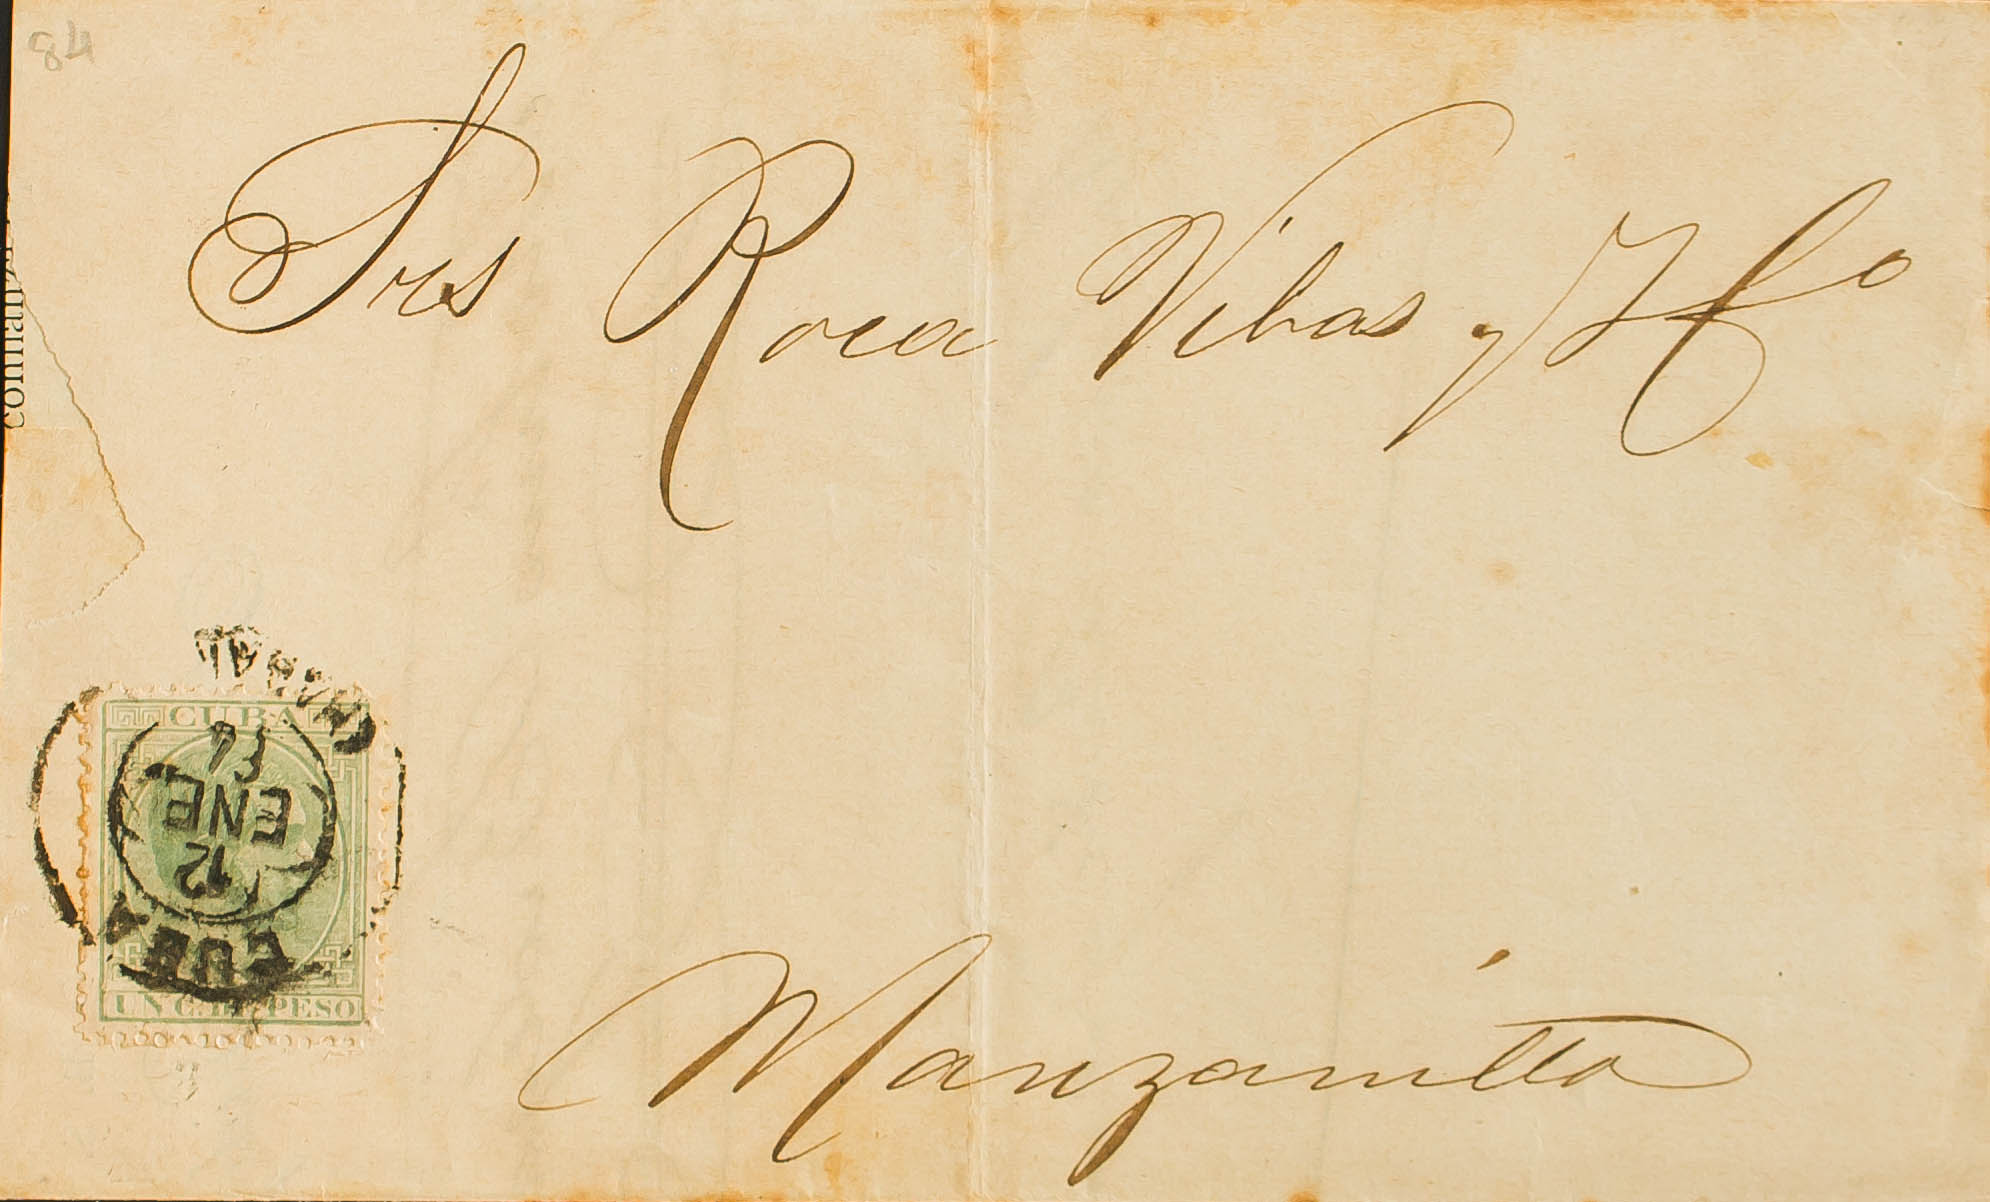 84
Srs Roca Vibas y Hº
Manzanillo
CUBA
UN C. DE PESO
12
ENE
CUBA